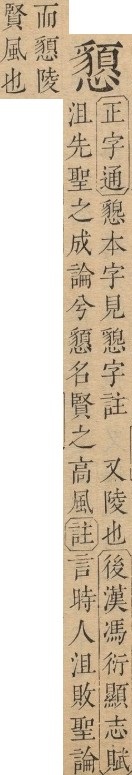 正字通懇本字見懇字註 又陵也後漢馮衍顯志賦
沮先聖之成論兮名賢之高風註言時人沮敗聖論
而陵
賢風也